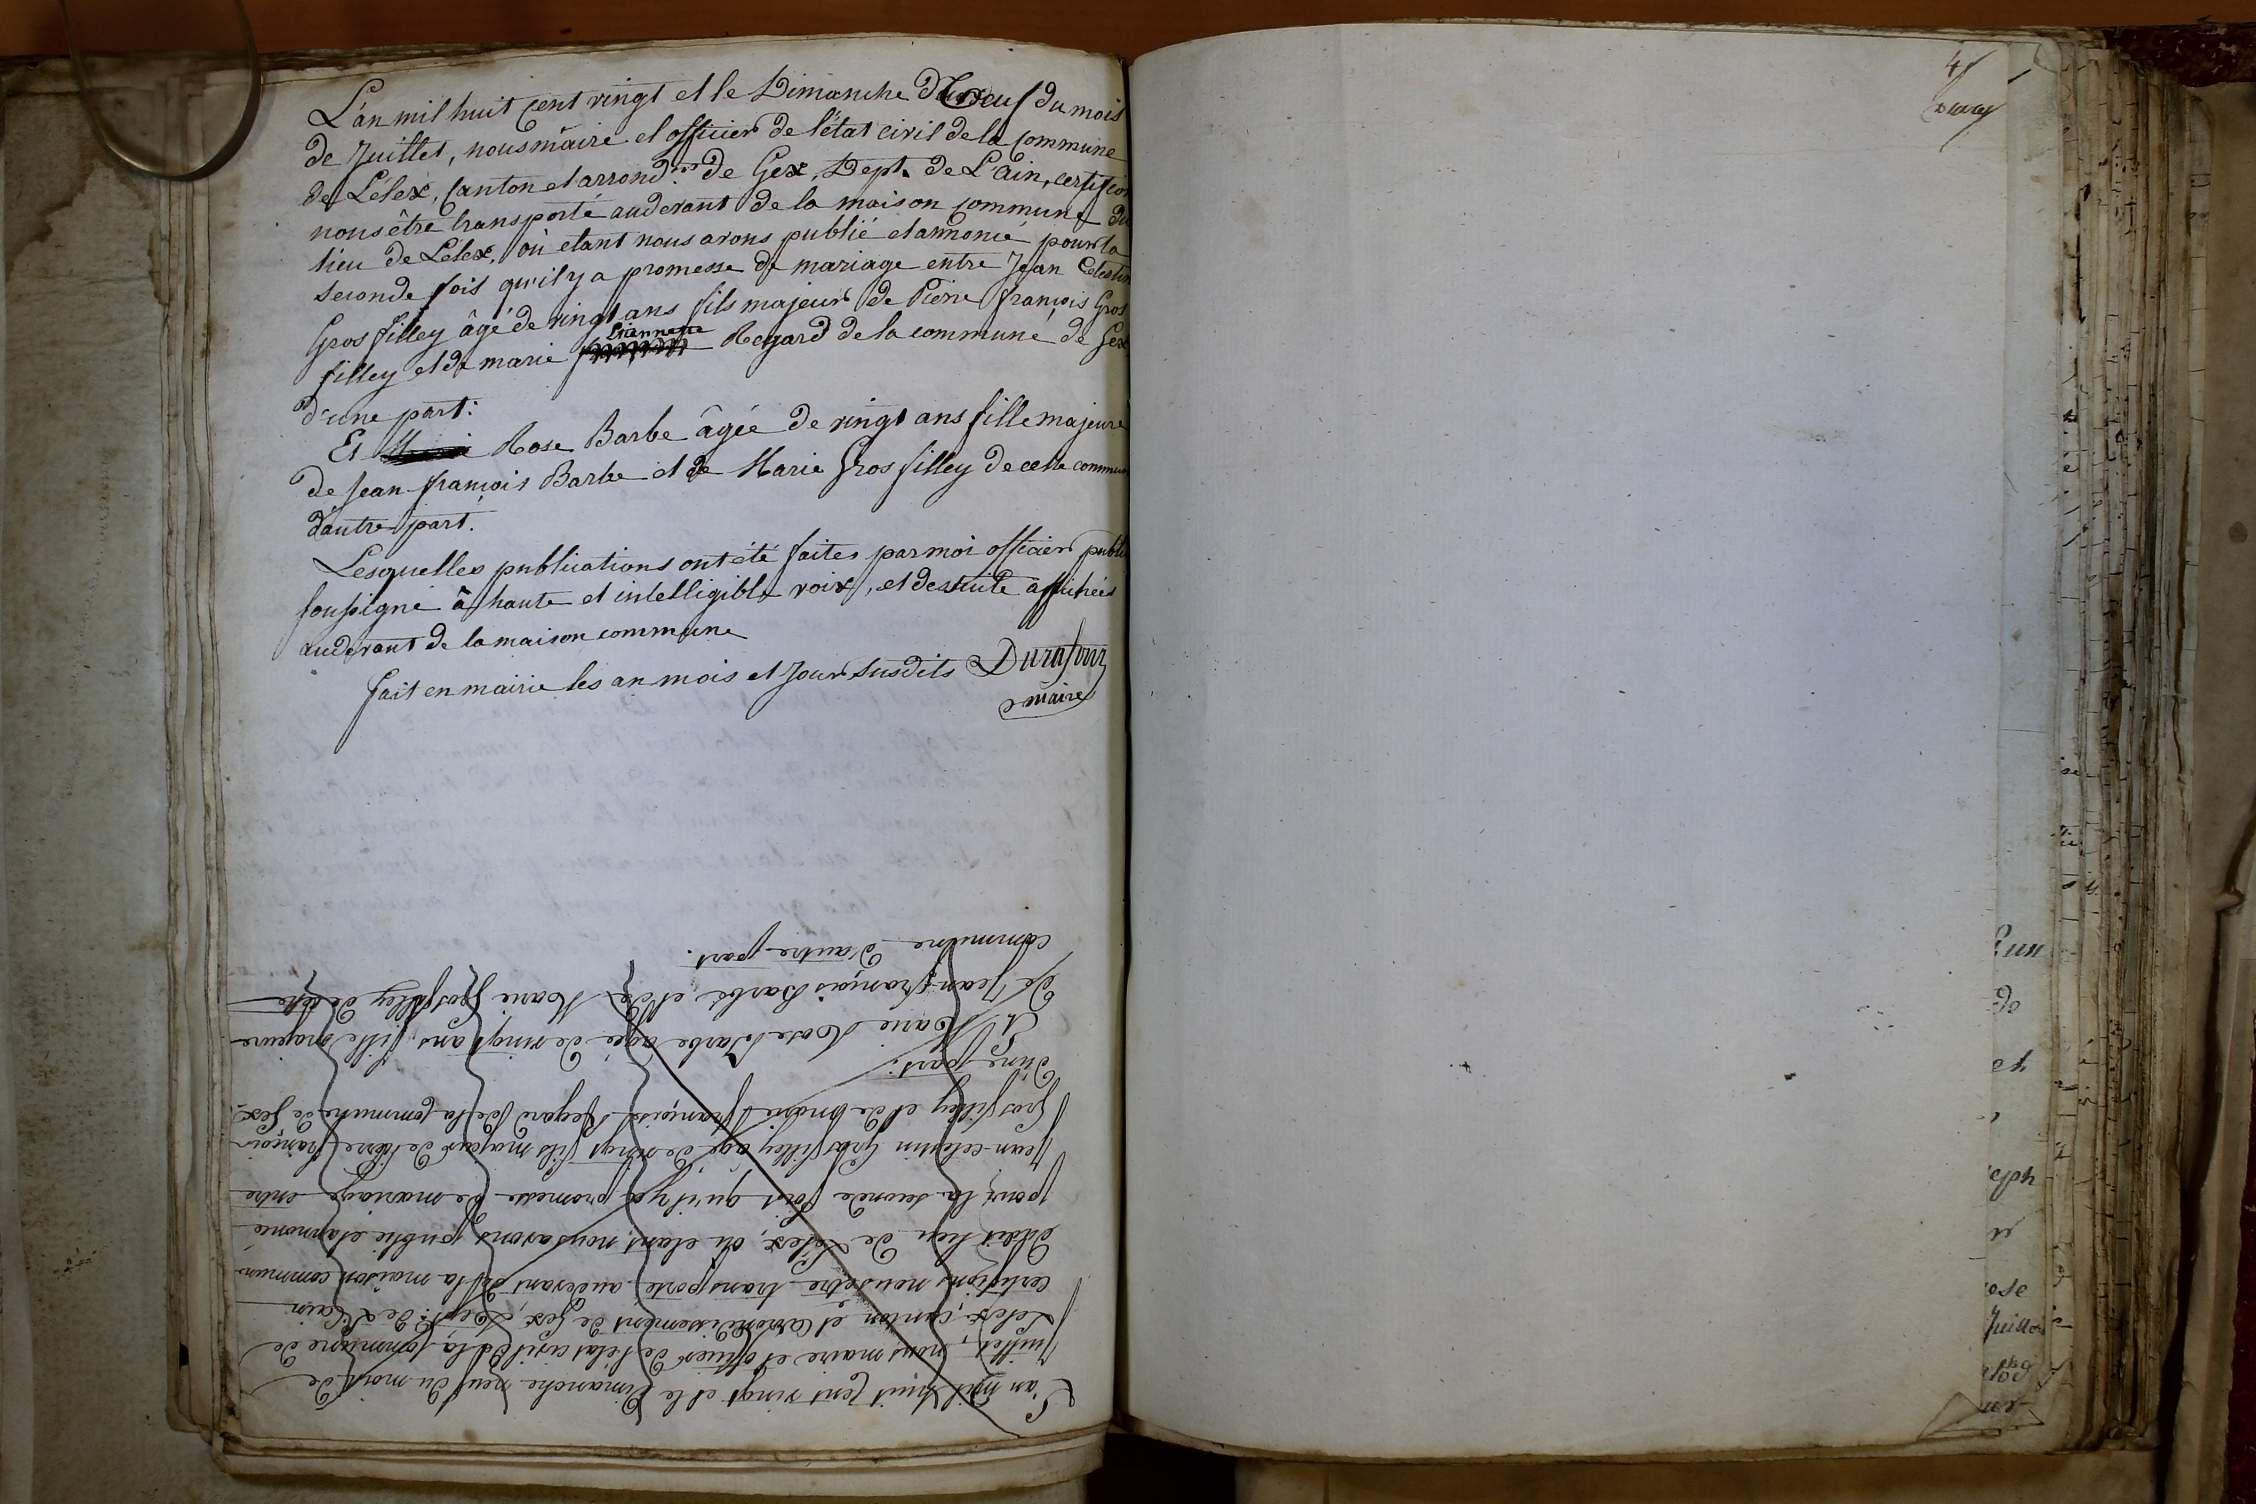 L'an mil huit cent vingt et le Dimanche neuf du mois
de Juillet, nous maire et officier de l'état civil de la commune
de Lélex, Canton et arrond.nt de Gex, Dept. de L'ain, certifions
nous être transporté audevant de la maison commune du
lieu de Lélex, où etant nous avons publié et annoncé pour la
seconde fois qu'il y a promesse de mariage entre Jean Celestin
Gros filley âgé de vingt ans fils majeur de Pierre françois Gros
filley et de marie Regard de la commune de Gex
d'une part:
Et Rose Barbe âgée de vingt ans fille majeure
de Jean-françois Barbe et de Marie Gros filley de cette commune
d'autre part.
Lesquelles publications ont été faites par moi officier public
soussigné à haute et intelligible voix, et de suite affichées
audevant de la maison commune
fait en mairie les an mois et Jour susdits Durafour
maire
L'an mil huit cent vingt et le Dimanche neuf du mois de
Juillet, nous maire et officier de l'état civil de la commune de
Lélex, canton et arrondissement de Gex, Dept. de L'ain
certifions nous être transporté audevant de la maison commun
dudit lieu de Lélex, où etant, nous avons publié et annoncé
pour la seconde fois qu'il y a promesse de mariage entre
Jean-celestin Gros filley âgé de vingt fils majeur de Pierre françois
Gros filley et de marie françoise Regard de la commune de Gex.
d'une part:
Et Marie Rose Barbe âgée de vingt ans, fille majeure
de Jean-françois Barbe et de Marie Gros filley de cette
commune d'autre part.
4